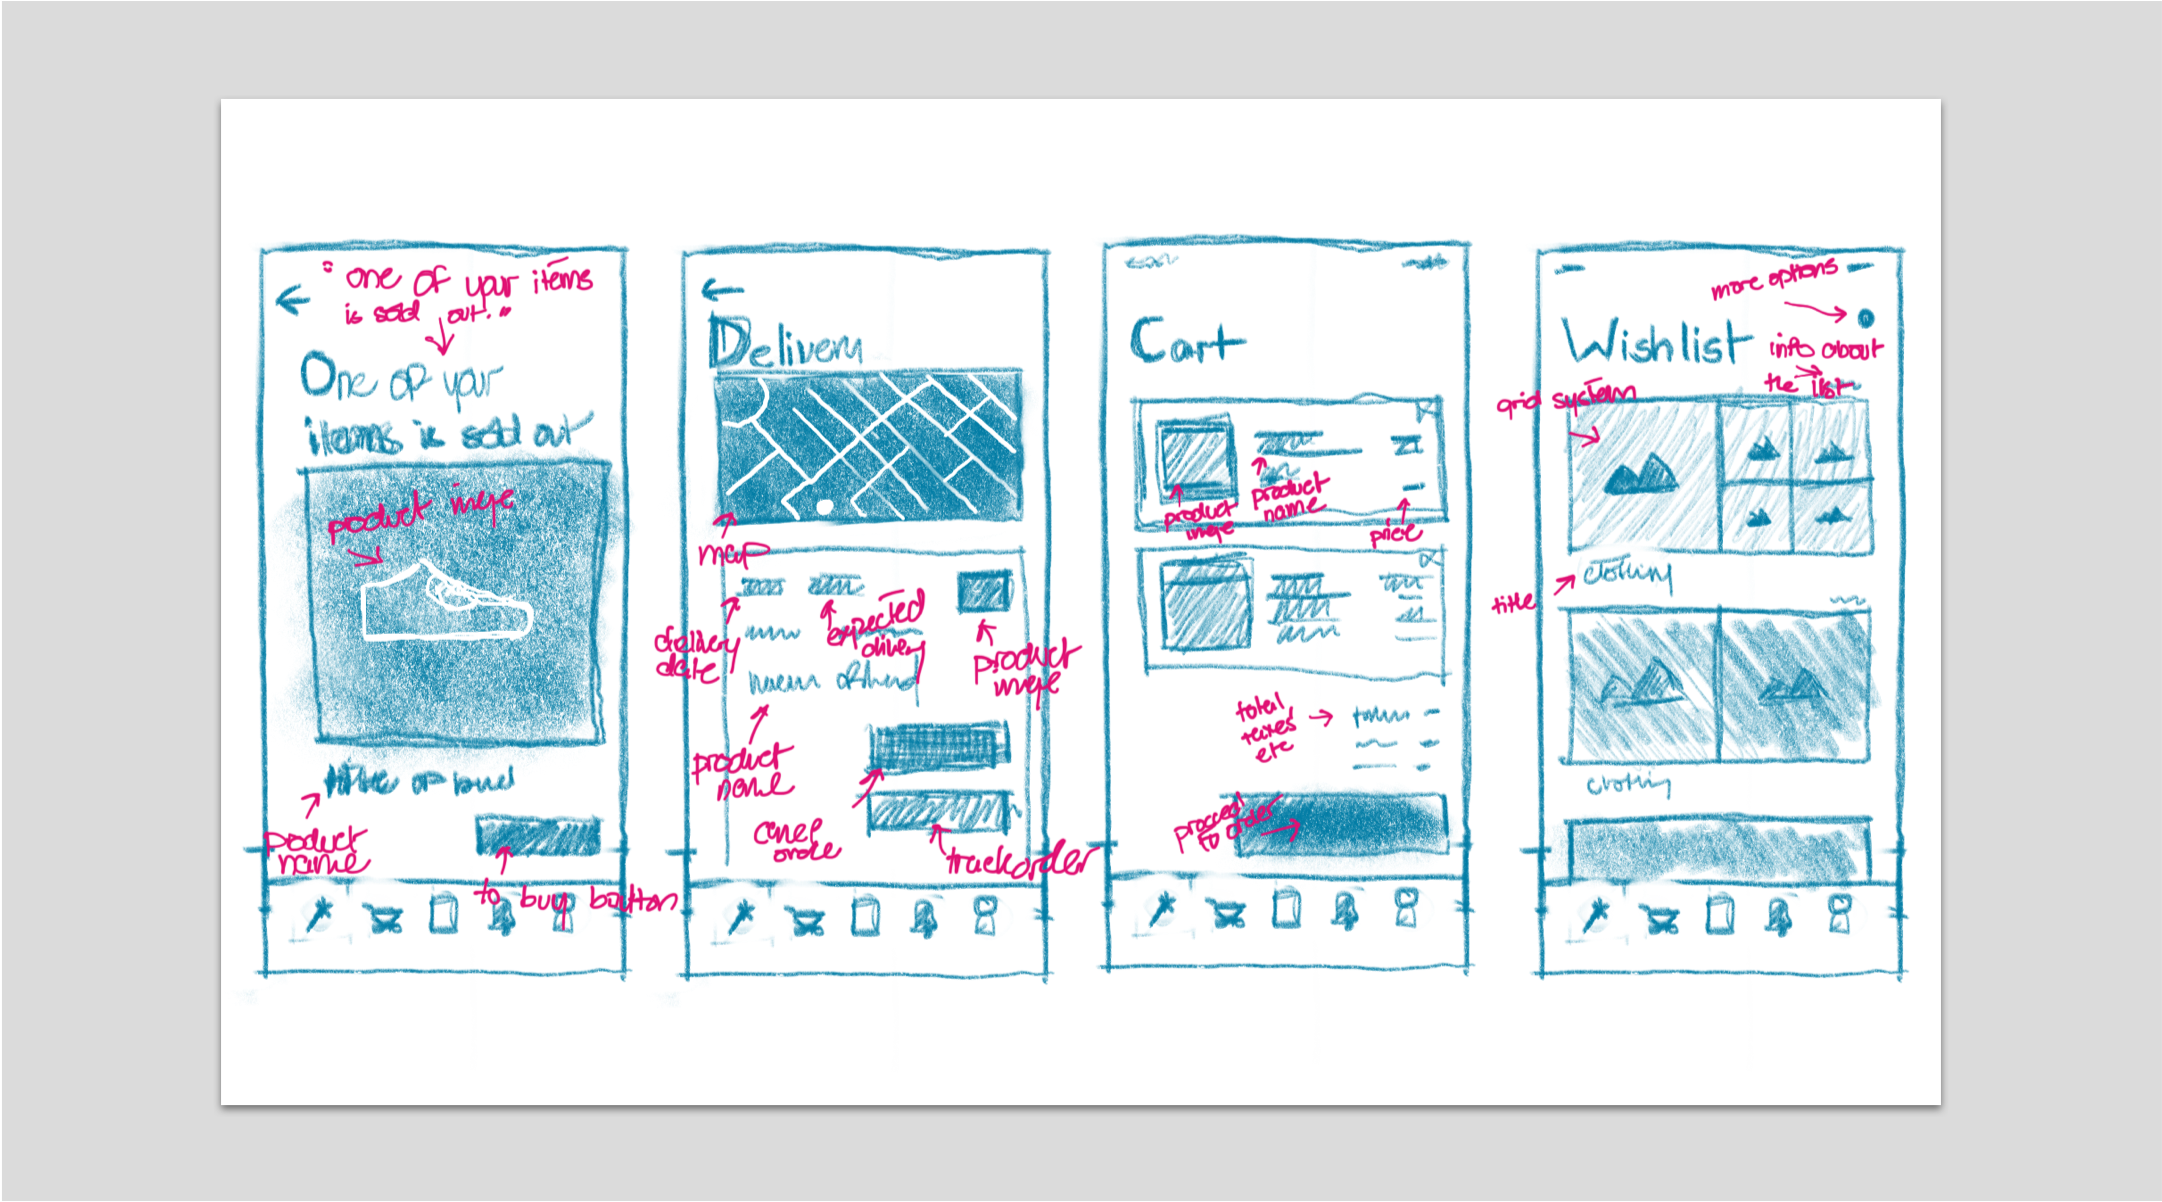 "one of your items
is sold out."
One of your
items is sold out
product image
title of
product
name
to buy button
Delivery
map
delivery
date
expected
delivery
product
image
product
name
cancel
order
track order
Cart
product
image
product
name
price
total
taxes
etc
proceed
to order
more options
Wishlist
info about
the list
grid system
clothing
title
clothing